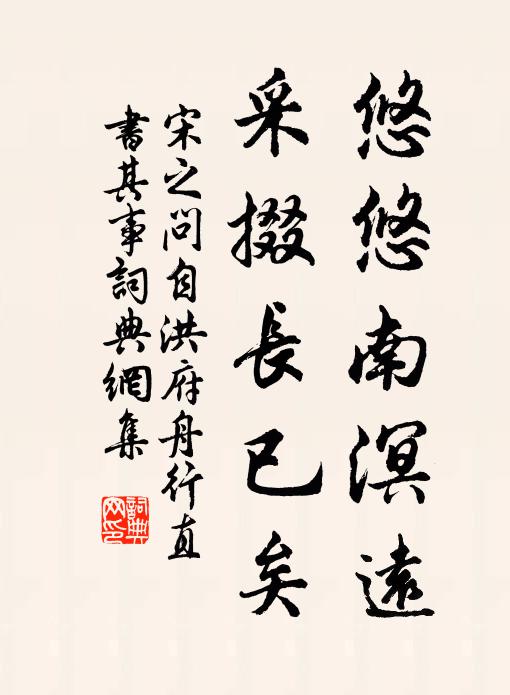 悠悠南溟遠
采掇長已矣
宋之問自洪府舟行直
書其事詞典網集
詞典
网印